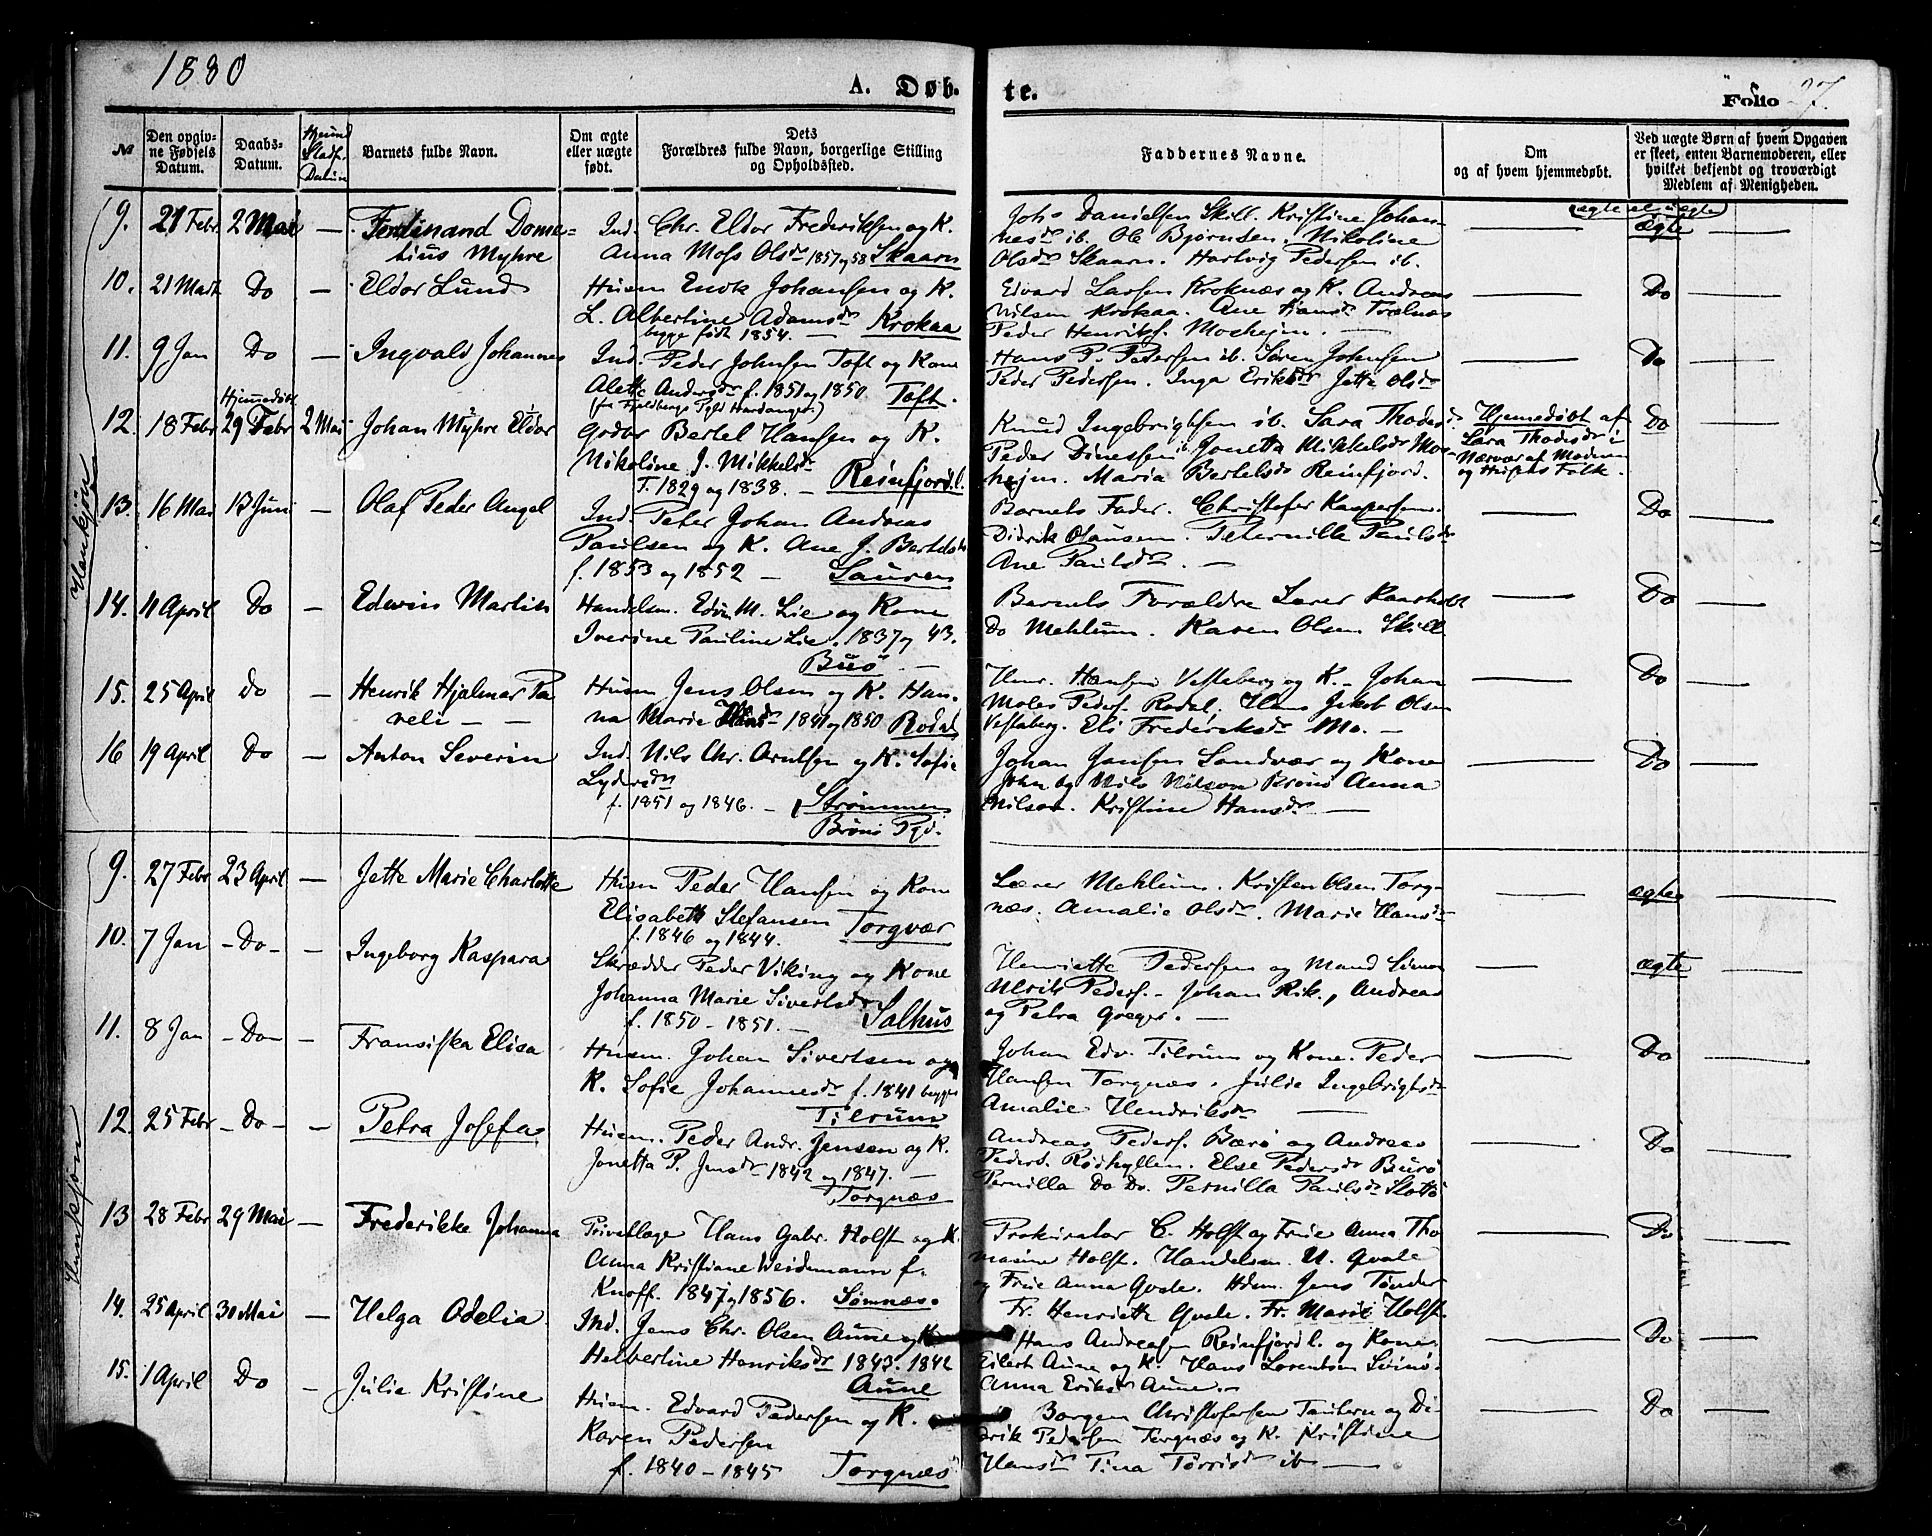 1880
A. Døb-
te.
Folio 27.
№
Den opgiv-
ne Fødsels
Datum.
Daabs-
Datum.
Hjemmd
Stadf.
Datum
Barnets fulde Navn.
Om ægte
eller uægte
født.
Dets
Forældres fulde Navn, borgerlige Stilling
og Opholdssted.
Faddernes Navne.
Om
og af hvem hjemmedøbt.
Ved uægte Børn af hvem Opgaven
er skeet, enten Barnemoderen, eller
hvilket bekjendt og troværdigt
Medlem af Menigheden.
ægte el uægte
Hankjøn
9. 21 Febr 2 Mai — Ferdinand Dome-
tius Myhre
Ind. Chr. Eldor Frederiksen og K.
Anna Moss Olsdr 1857 og 58 Skaarn
Johs Danielsen Skill. Kristine Johan-
nesdr ib. Ole Bjørnsen. Nikoline
Olsdr Skaarn. Hartvig Pedersen ib.
— ægte —
10. 21 Marts Do — Eldor Lund
Husm Enok Johansen og K.
L. Albertine Adamsdr Krokaa
begge født 1854. —
Edvard Larsen Kroknæs og K. Andreas
Nilsen Krokaa. Ane Hansdr Trælnæs
Peder Henriksf. Moshejm. —
— Do —
11. 9 Jan Do — Ingvald Johannes
Ind. Peder Johnsen Toft og Kone
Alette Andersdr f. 1851 og 1850 Toft.
(fra Fjeldbergs Pgld Hardanger)
Hans P. Pedersen ib. Søren Johnsen
Peder Pedersen. Inga Eriksdr Jette Olsdr
— Do —
12. 18 Febr Hjemmedøbt
29 Febr 2 Mai Johan Myhre Eldor
Gdbr Bertel Hansen og K.
Nikoline J. Mikkelsdr
F. 1829 og 1838. — Reinfjord l.
Knud Ingebrigtsen ib. Sara Thodesdr
Peder Dinessen ib Jonetta Mikkelsdr Mos-
hejm. Maria Bertelsdr Reinfjord.
Hjemmedøbt af
Sara Thodesdr i
Nærvær af Moderen
og Husets Folk.
Do —
13. 16 Mai 13 Juni Olaf Peder Angel
Ind. Peter Johan Andreas
Paulsen og K. Ane J. Bertelsdr
f. 1853 og 1852 — Sauren
Barnets Fader. Christofer Kaspersen.
Didrik Olausen. Peternille Paulsdr
Ane Paulsdr. —
— Do —
14. 11 April Do — Edwin Martin
Handelsm. Edv. M. Lie og Kone
Iverine Pauline Lie. 1837 og 43.
Burø. —
Barnets Forældre Lærer Kaarholt
Do Mehlum. Karen Olsen Skill
— Do —
15. 25 April do — Henrik Hjalmar Pa
veli — —
Husm Jens Olsen og K. Han-
na Marie Hansdr 1841 og 1850 Rodal
Henr. Hansen Vesteberg og K. Johan
Moles Peders. Rodal. Hans Jakob Olsen
Vesteberg. Eli Frederiksdr Mo. —
— Do —
16 19 April Do — Anton Severin
Ind. Nils Chr. Arntsen og K. Sofie
Lydersdr
f. 1851 og 1846. — Strømmen
Brønø Pgd.
Johan Jensen Sandvær og Kone
John og Nils Nilsson Brønø Anna
Nilsen. Kristine Hansdr —
— Do —
Hunkjøn
9. 27 Febr 23 April — Jette Marie Charlotte
Husm Peder Hansen og Kone
Elisabeth Stefansen Torgvær
f. 1846 og 1844.
Lærer Mehlum. Kristen Olsen Torg-
næs. Amalie Olsdr. Marie Hansdr
— ægte —
10. 7 Jan - Do - — Ingeborg Kaspara
Skrædder Peder Viking og Kone
Johanna Marie Sivertsdr
f. 1850 - 1851. — Salhus
Henriette Pedersen og Mand Simon
Ulrik Peders. - Johan Rik., Andreas
og Petra Greger. —
— ægte —
11. 8 Jan - Do - - Fransiska Elisa
Husm. Johan Sivertsen og
K. Sofie Johannesdr f. 1841 begge
Tilrum
Johan Edv. Tilrum og Kone. Peder
Hansen Torgnæs. Julie Ingebrigtsdr
Amalie Hendriksdr —
— Do —
12. 25 Febr - Do - - Petra Josefa
Husm. Peder Andr. Jensen og K.
Jonetta P. Jensdr 1842 og 1847. —
Torgnæs
Andreas Peders. Bærø og Andreas
Peders. Rødhyllen. Else Pedersdr Burø
Pernilla Do Do. Pernilla Paulsdr Slottø
— Do —
13 28 Febr 29 Mai — Frederikke Johanna
Privatlæge Hans Gabr. Holst og K.
Anna Kristiane Weidemann f.
Knoff. 1847 og 1856. Sømnæs.
Prokurator C. Holst og Frue Anna Tho
masine Holst. Handelsm. U. Qvale
og Frue Anna Qvale. Hdm. Jens Tønder
Fr. Henriette Qvale. Fr. Marie Holst.
— Do —
14. 25 April 30 Mai — Helga Odelia
Ind. Jens Chr. Olsen Aune og K
Helbertine Henriksdr 1843. 1842
Aune
Hans Andreasen Reinfjord l. og Kone
Eilert Aune og K. Hans Lorentsen Svinø.
Anna Eriksdr Aune. —
— Do —
15. 1 April Do — Julie Kristine
Husm. Edvard Pedersen og K.
Karen Pedersen
f. 1840 - 1845 Torgnæs
Borgen Christofersen Tauhern og Di-
drik Pedersen Torgnæs og K. Kristiane
Hansdr Tina Torrisdr ib —
— Do —